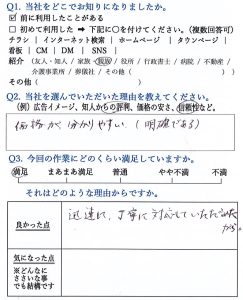 Q1. 当社をどこでお知りになりましたか。
☑ 前に利用したことがある
☐ 初めて利用した ➡ 下記に○を付けてください。（複数回答可）
チラシ | インターネット検索 | ホームページ | タウンページ |
看板 | CM | DM | SNS |
紹介（友人・知人 / 家族・親戚 / 役所 / 行政書士 / 病院 / 不動産 /
介護事業所 / 葬儀社 / その他（　　　））
その他（　　　）
Q2. 当社を選んでいただいた理由を教えてください。
（例）広告イメージ、知人からの評判、価格の安さ、信頼性など。
価格が分かりやすい（明確である）
Q3. 今回の作業にどのくらい満足していますか。
満足　まあまあ満足　普通　やや不満　不満
それはどのような理由からですか。
良かった点
迅速に、丁寧に対応していただけた
から。
気になった点
※どんなに
ささいな事
でも結構です